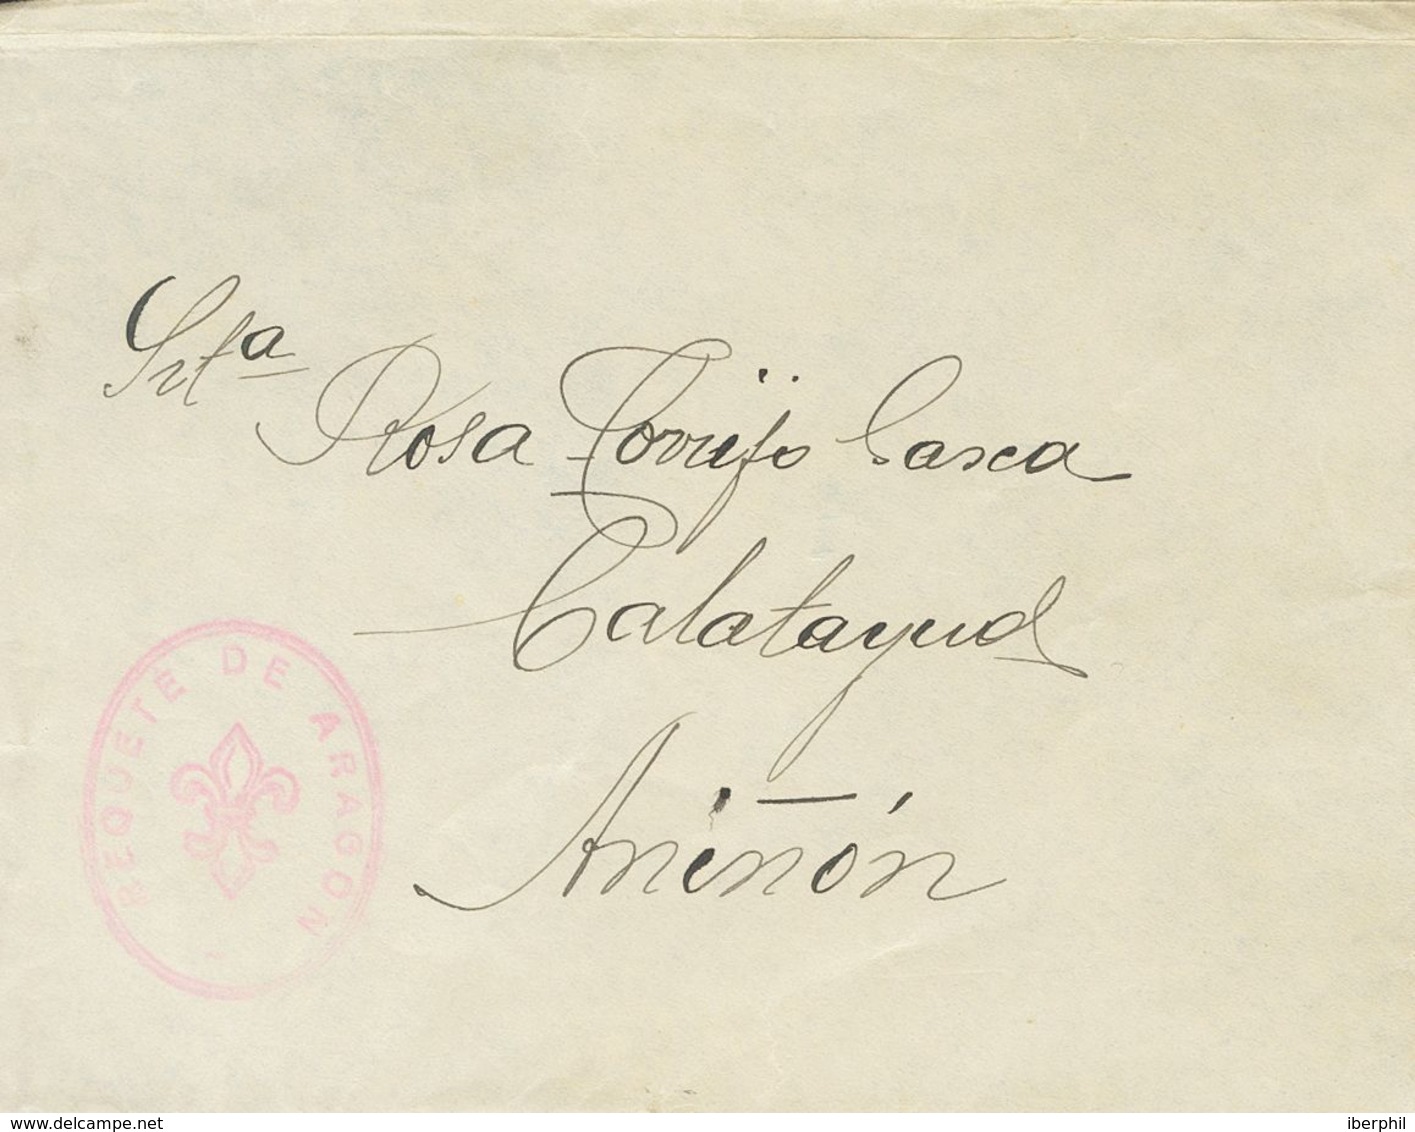 Srta
Rosa Torrijo Gasca
Calatayud
Aniñón
REQUETÉ DE ARAGON
www.delcampe.net
iberphil